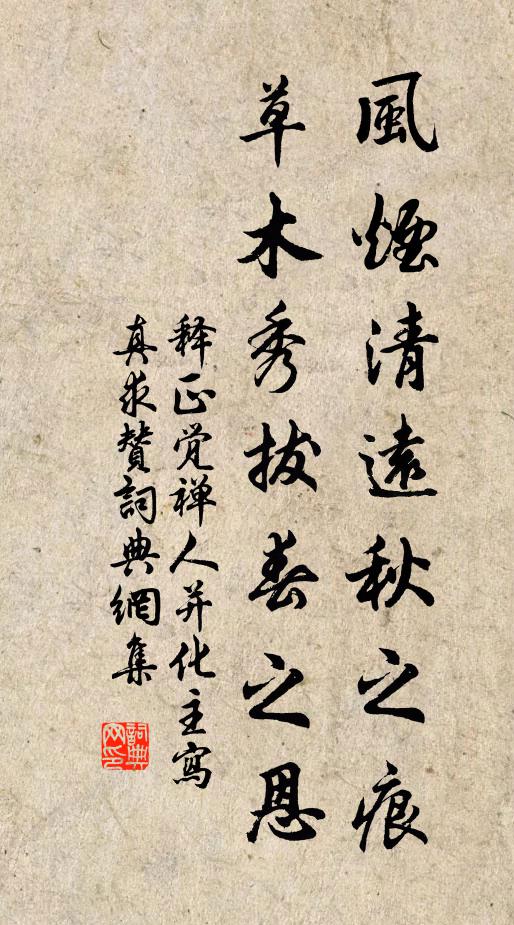 風煙清遠秋之痕
草木秀拔春之恩
释正觉禅人并化主寫
真求赞詞典網集
詞典网印